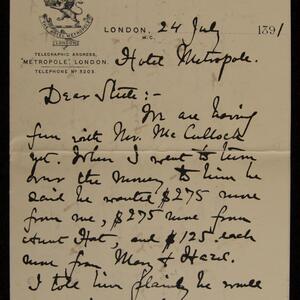 LONDON,
W.C.
24 July
1391
TELEGRAPHIC ADDRESS,
"METROPOLE", LONDON.
TELEPHONE Nº 3203.
Hotel Metropole.
Dear Stete:-
We are having
fun with Mr. McCulloch
yet. When I went to turn
over the money to him he
said he wanted $275 more
from me, $275 more from
Aunt Hat, and $125. each
more from Mary & Hazel.
I told him plainly he would